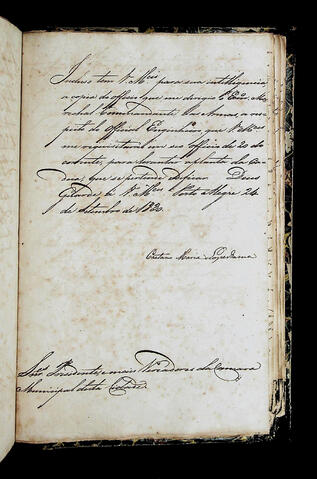 Incluso tem V. Mces para sua intelligencia
a copia do officio que me dirigio o Exmo. Ma
rechal Commandante das Armas, a res
peito do Official Engenheiro, que V. Mces
me requisitarão em seu officio de 20 do
corrente, para levantar a planta da Ca
deia, que se pertende edificar. Deos
Guarde a V. Mces Porto Alegre 24
de Setembro de 1830.
Caetano Maria Lopes Gama
Snres. Presidente, e mais Vereadores da Camara
Municipal desta Cidade.